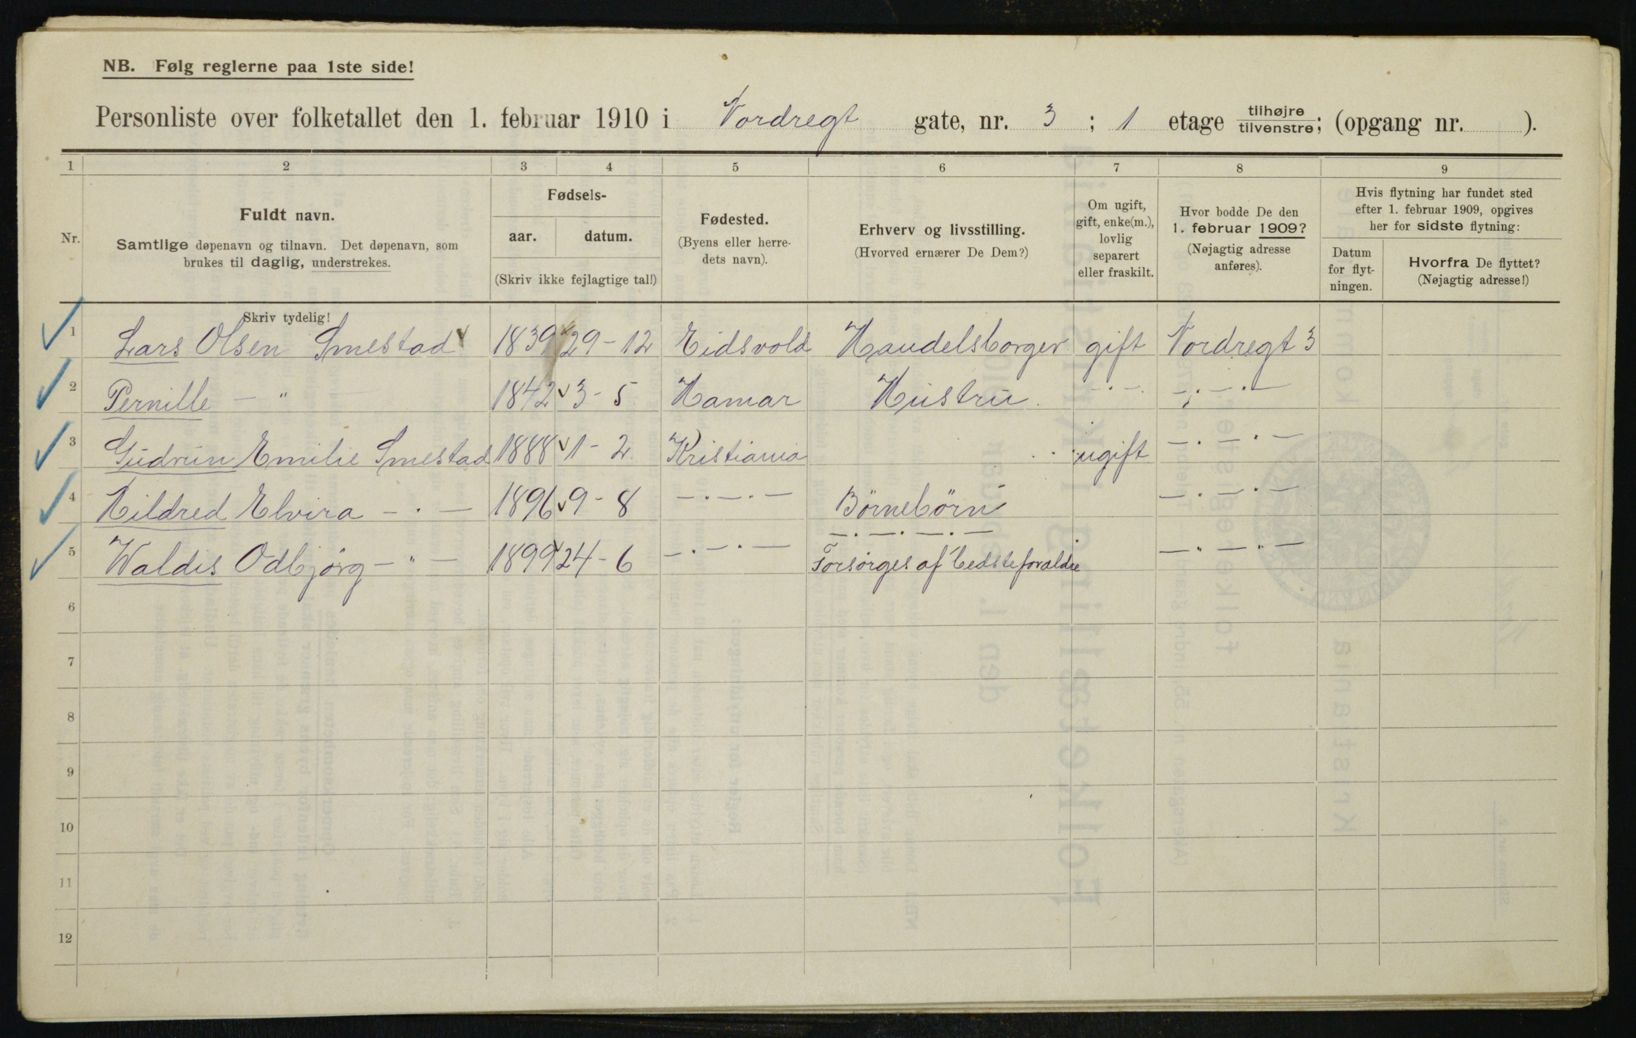 NB. Følg reglerne paa 1ste side!
Personliste over folketallet den 1. februar 1910 i Nordregt gate, nr. 3 ; 1 etage tilhøjre tilvenstre; (opgang nr. ).
1 2 3 4 5 6 7 8 9
Nr.
Fuldt navn.
Samtlige døpenavn og tilnavn. Det døpenavn, som
brukes til daglig, understrekes.
Fødsels-
aar. datum.
(Skriv ikke fejlagtige tal!)
Fødested.
(Byens eller herre-
dets navn).
Erhverv og livsstilling.
(Hvorved ernærer De Dem?)
Om ugift,
gift, enke(m.),
lovlig
separert
eller fraskilt.
Hvor bodde De den
1. februar 1909?
(Nøjagtig adresse
anføres).
Hvis flytning har fundet sted
efter 1. februar 1909, opgives
her for sidste flytning:
Datum
for flyt-
ningen.
Hvorfra De flyttet?
(Nøjagtig adresse!)
Skriv tydelig!
1 Lars Olsen Smestad 1839 29-12 Eidsvold Handelsborger gift Nordregt 3
2 Pernille - " 1842 3-5 Hamar Hustru. -·-· -·-·-
3 Gudrun Emilie Smestad 1888 1-2 Kristiania ugift -·-·-
4 Hildred Elvira - · - 1896 9-8 -·-·- Børnebørn -·-·-
5 Waldis Odbjørg - " - 1899 24-6 -·-·- -·-·-·- -·-·-
Forsørges af Bedsteforældre
6
7
8
9
10
11
12